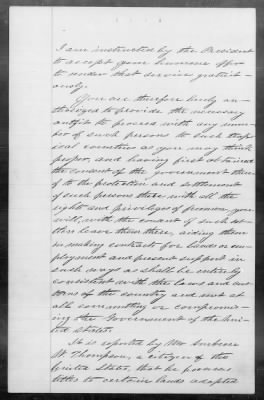 I am instructed by the President
to accept your humane offer
to render that service gratuit-
ously.
You are therefore duly au-
thorized to provide the necessary
outfit to proceed with any num-
ber of such persons to such trop-
ical countries as you may think
proper, and having first obtained
the consent of the government there-
of to the protection and settlement
of such persons there, with all the
rights and privileges of freemen, you
will, with the consent of such set-
tlers leave them there, aiding them
in making contracts for lands or em-
ployment and present support in
such ways as shall be entirely
consistent with the laws and cus-
toms of the country and not at
all committing or compromis-
ing the Government of the Uni-
ted States.
It is reported by Mr Ambrose
W Thompson, a citizen of the
United States, that he possesses
titles to certain lands adapted